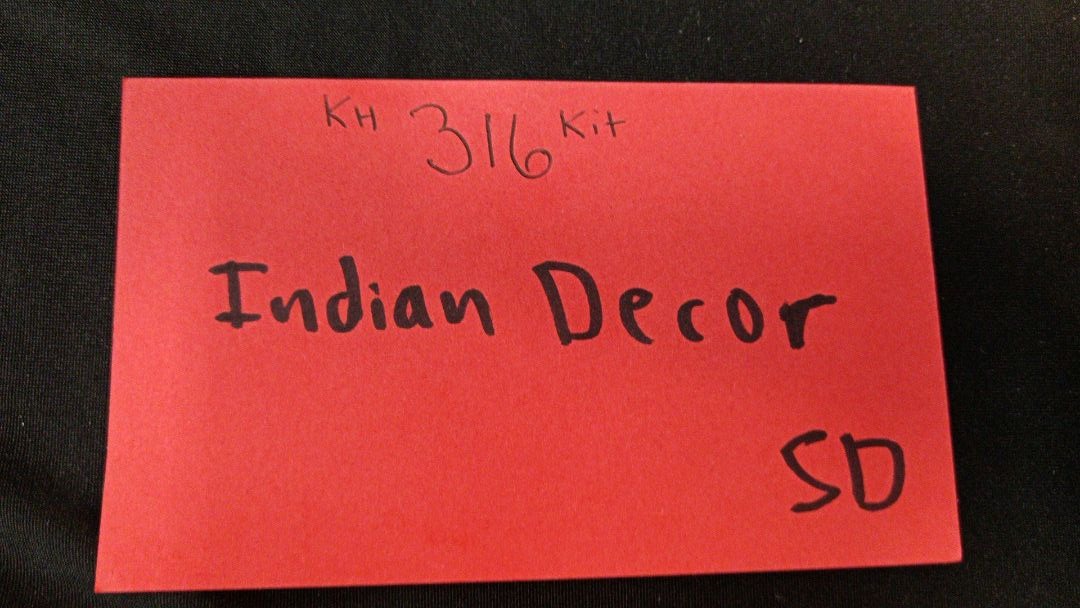 KH 316 Kit
Indian Decor
SD